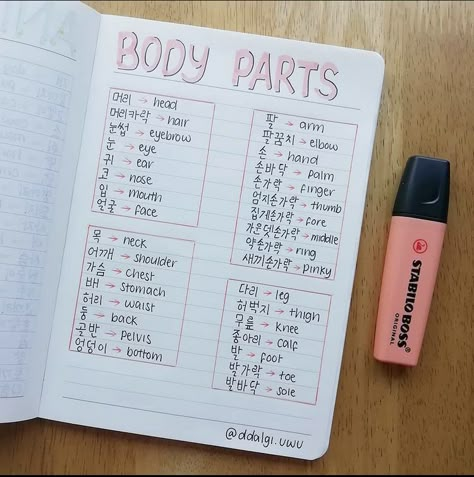 BODY PARTS
머리 → head
머리카락 → hair
눈썹 → eyebrow
눈 → eye
귀 → ear
코 → nose
입 → mouth
얼굴 → face
목 → neck
어깨 → shoulder
가슴 → chest
배 → stomach
허리 → waist
등 → back
골반 → pelvis
엉덩이 → bottom
팔 → arm
팔꿈치 → elbow
손 → hand
손바닥 → palm
손가락 → finger
엄지손가락 → thumb
집게손가락 → fore
가운뎃손가락 → middle
약손가락 → ring
새끼손가락 → pinky
다리 → leg
허벅지 → thigh
무릎 → knee
종아리 → calf
발 → foot
발가락 → toe
발바닥 → sole
@ddalgi.uwu
STABILO BOSS
ORIGINAL